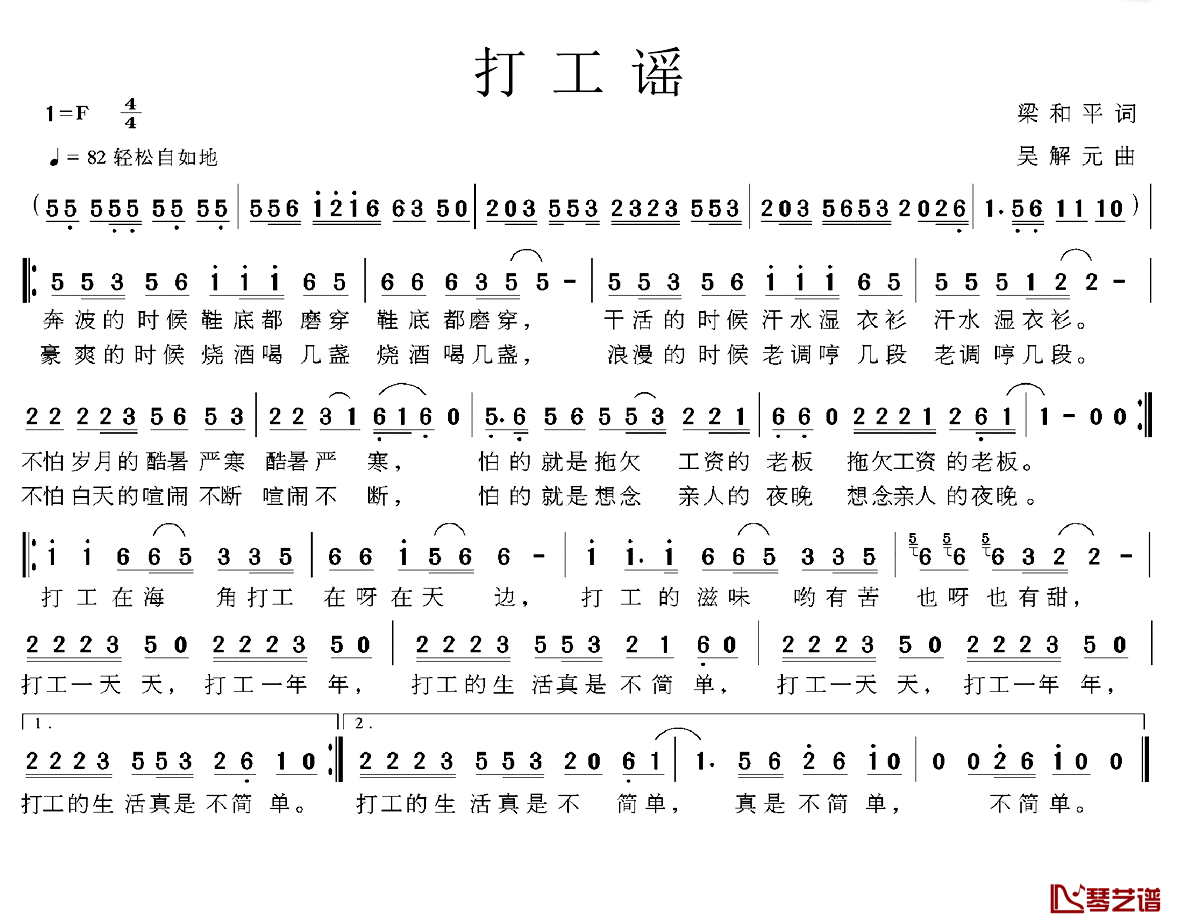 打工谣
1=F 4/4
梁和平词
♩= 82 轻松自如地
吴解元曲
(55 555 55 55 | 556 1216 63 50 | 203 553 2323 553 | 203 5653 2026 | 1. 56 11 10) |
‖: 553 56 111 65 | 66 635 5 - | 553 56 111 65 | 55 512 2 - |
奔波的时候鞋底都磨穿 鞋底都磨穿， 干活的时候汗水湿衣衫 汗水湿衣衫。
豪爽的时候烧酒喝几盏 烧酒喝几盏， 浪漫的时候老调哼几段 老调哼几段。
22 223 56 53 | 22 31 616 0 | 5.6 56 553 221 | 66 0 2221 261 | 1 - 00 :‖
不怕岁月的酷暑严寒 酷暑严寒， 怕的就是拖欠 工资的老板 拖欠工资的老板。
不怕白天的喧闹不断 喧闹不断， 怕的就是想念 亲人的夜晚 想念亲人的夜晚。
‖: 1 1 665 335 | 66 156 6 - | 1 1. 1 665 335 | 56 56 5632 2 - |
打工在海 角打工 在呀在天 边， 打工的滋味 哟有苦 也呀也有甜，
2223 50 2223 50 | 2223 553 21 60 | 2223 50 2223 50 |
打工一天天， 打工一年年， 打工的生活真是不简单， 打工一天天， 打工一年年，
1. 2.
2223 553 26 10 :‖ 2223 553 20 61 | 1. 56 26 10 | 0 026 10 0 ‖
打工的生活真是不简单。 打工的生活真是不 简单， 真是不简单， 不简单。
琴艺谱